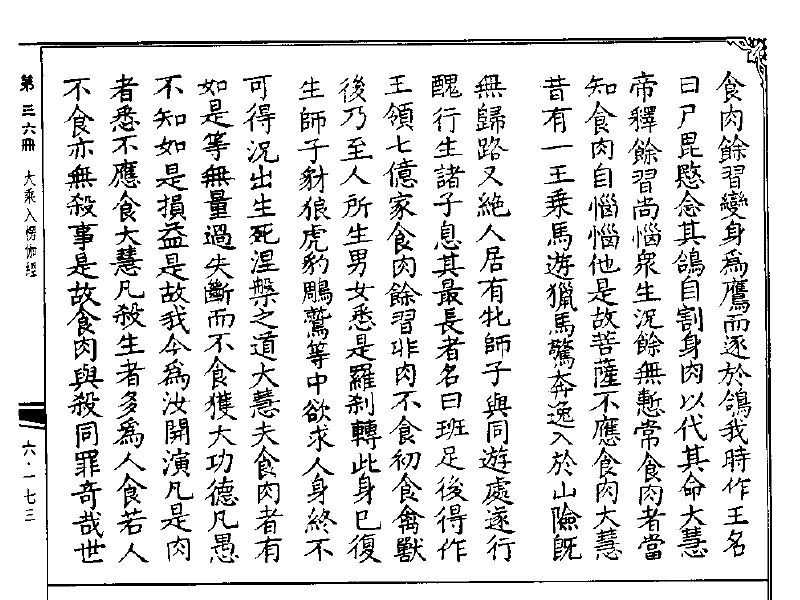 食肉餘習變身爲鷹而逐於鴿我時作王名
曰尸毘愍念其鴿自割身肉以代其命大慧
帝釋餘習尚惱衆生況餘無慙常食肉者當
知食肉自惱惱他是故菩薩不應食肉大慧
昔有一王乗馬遊獵馬驚奔逸入於山險旣
無歸路又絶人居有牝師子與同遊處遂行
醜行生諸子息其最長者名曰班足後得作
王領七億家食肉餘習非肉不食初食禽獸
後乃至人所生男女悉是羅刹轉此身已復
生師子豺狼虎豹鵰鷲等中欲求人身終不
可得況出生死涅槃之道大慧夫食肉者有
如是等無量過失斷而不食獲大功德凡愚
不知如是損益是故我今爲汝開演凡是肉
者悉不應食大慧凡殺生者多爲人食若人
不食亦無殺事是故食肉與殺同罪奇哉世
第三六冊 大乘入楞伽經
六·一七三